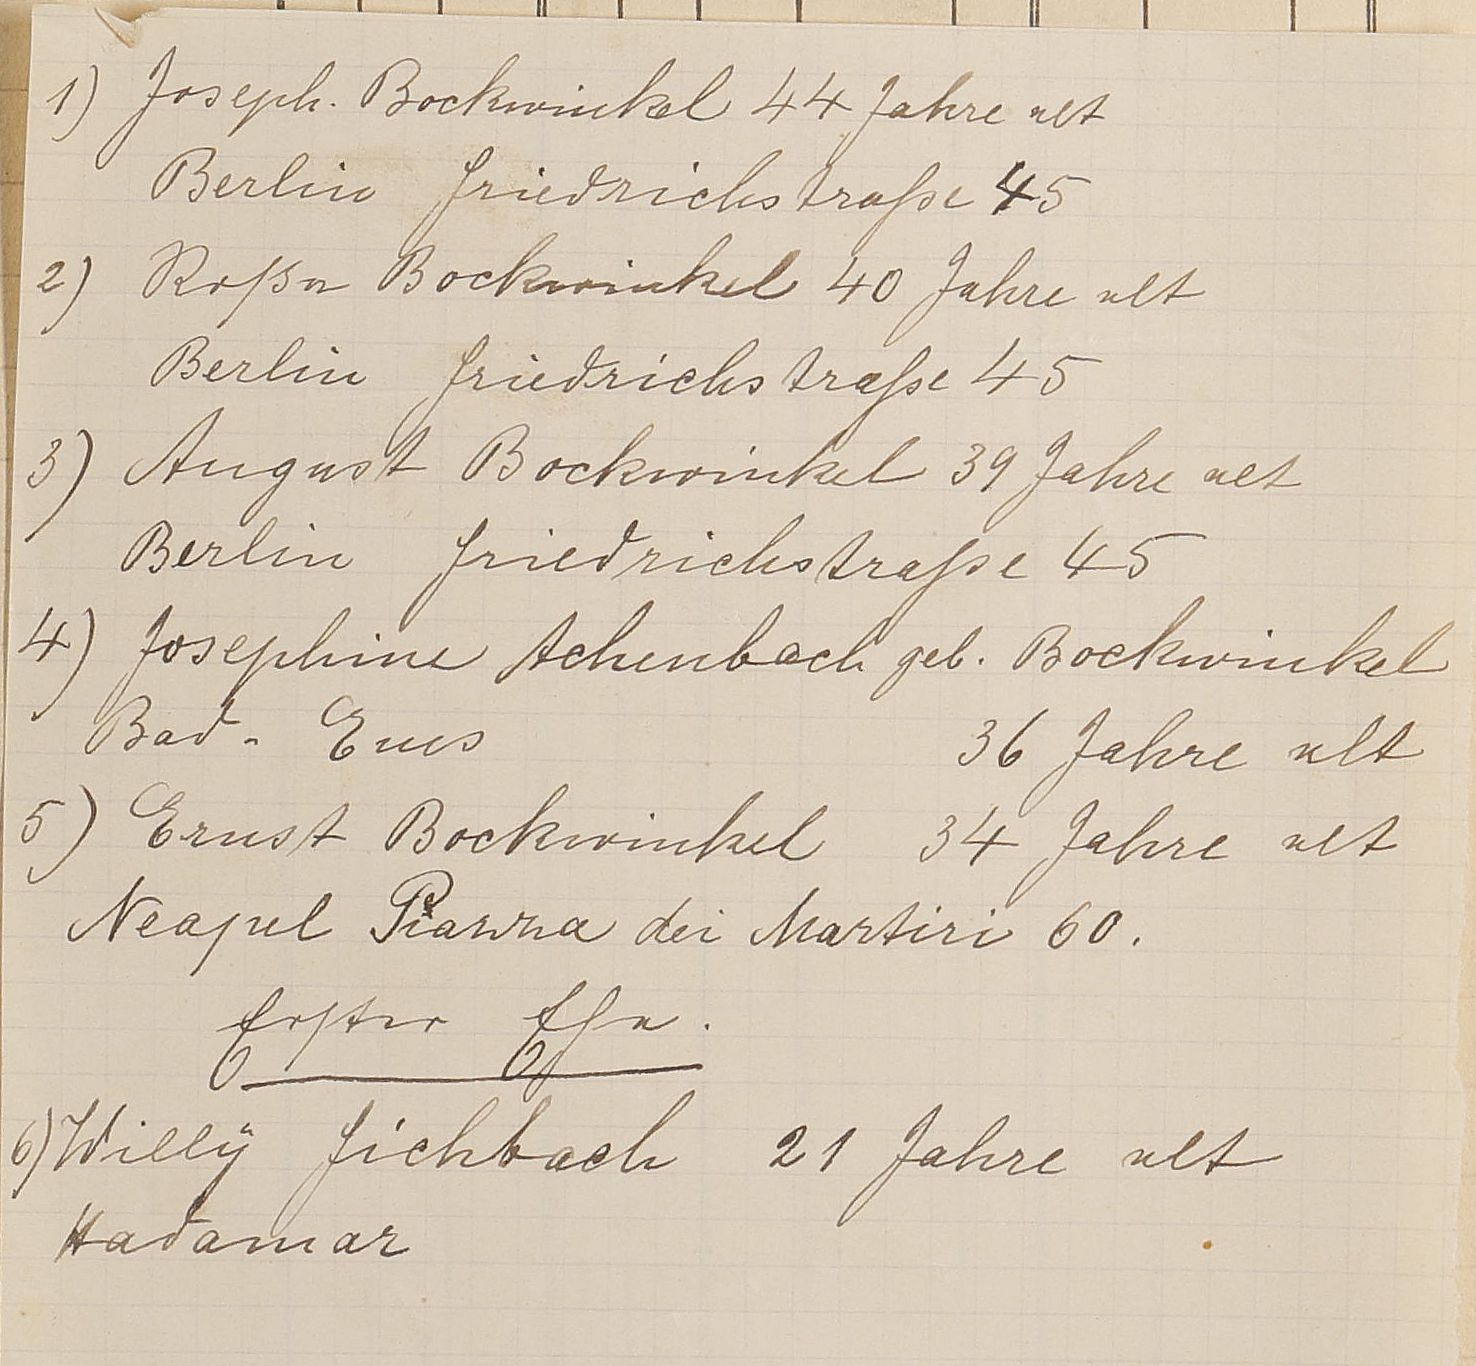 1) Joseph. Bockwinkel 44 Jahre alt
Berlin Friedrichstraße 45
2) Roßa Bockwinkel 40 Jahre alt
Berlin Friedrichstraße 45
3) August Bockwinkel 39 Jahre alt
Berlin Friedrichstraße 45
4) Josephine Achenbach geb. Bockwinkel
Bad - Ems 36 Jahre alt
5) Ernst Bockwinkel 34 Jahre alt
Neapel Piazza dei Martiri 60.
Erster Ehe.
6) Willÿ Fichbach 21 Jahre alt
Hadamar